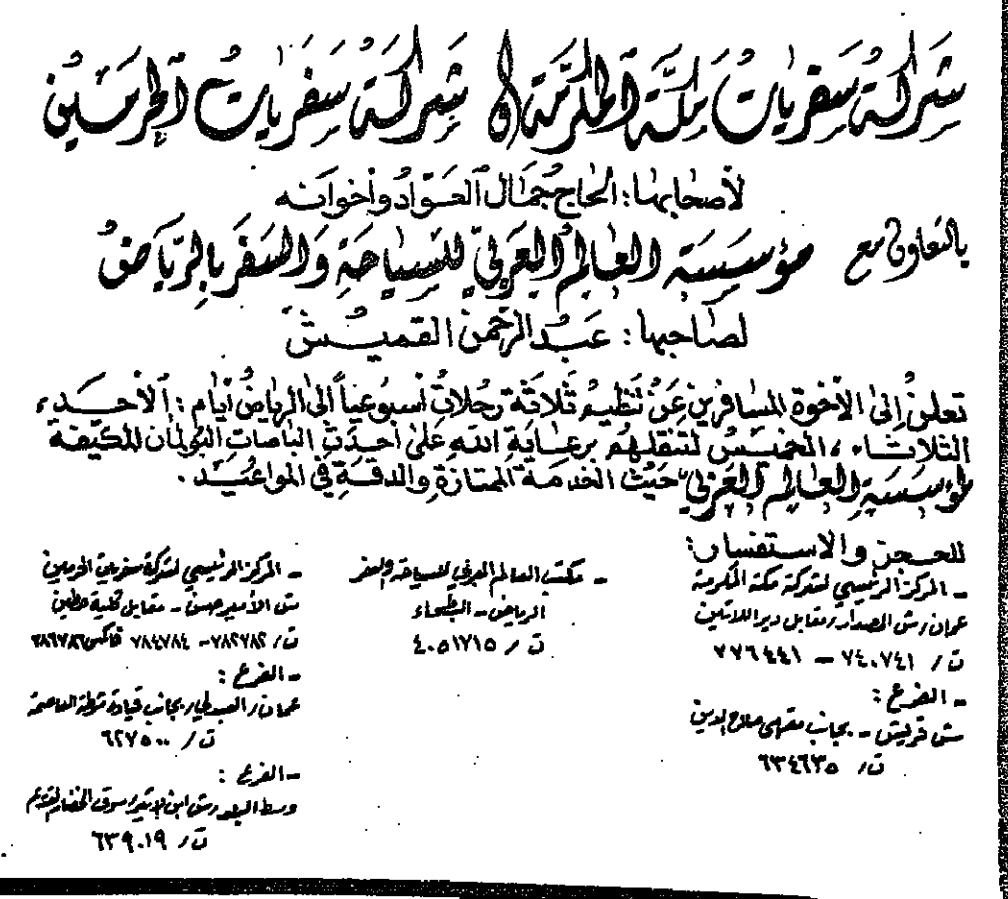 شركة سفريات مكة المكرمة و شركة سفريات الحرمين
لأصحابها: الحاج جمال العواد وأخوانه
بالتعاون مع مؤسسة العالم العربي للسياحة والسفر بالرياض
لصاحبها: عبد الرحمن القميش
تعلن إلى الأخوة المسافرين عن تنظيم ثلاثة رحلات أسبوعياً إلى الرياض أيام: الأحد،
الثلاثاء، الخميس لتنقلهم برعاية الله على احدث الباصات البولمان المكيفة
لمؤسسة العالم العربي حيث الخدمة الممتازة والدقة في المواعيد.
للحجز والاستفسار:
- المركز الرئيسي لشركة مكة المكرمة
عمان/ش المصدار/مقابل دير اللاتين
ت/ ٧٤٠٧٤١ - ٧٧٦٤٤١
- الفرع:
ش قريش - بجانب مقهى صلاح الدين
ت/ ٦٣٤٦٣٥
- مكتب العالم العربي للسياحة والسفر
الرياض - البطحاء
ت/ ٤٠٥١٧١٥
- المركز الرئيسي لشركة سفريات الحرمين
ش الأمير حسن - مقابل كلية حطين
ت/ ٧٨٢٧٨٢ - ٧٨٤٧٨٤ فاكس ٧٨٦٧٨٦
- الفرع:
عمان/ العبدلي/ بجانب قيادة شرطة العاصمة
ت/ ٦٢٧٥٠٠
- الفرع:
وسط البلد/ش ابن الاثير/سوق الخضار القديم
ت/ ٦٣٩٠١٩